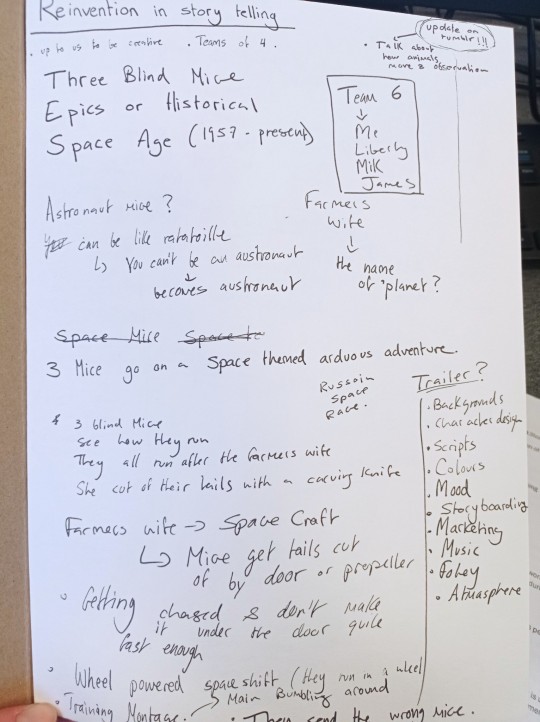 Reinvention in story telling
. up to us to be creative . Teams of 4 .
update on tumblr!!!
. Talk about how animals move & observation
Three Blind Mice
Epics or Historical
Space Age (1957 - present)
Team 6
Me
Liberty
Mik
James
Astronaut mice?
can be like ratatoille
You can't be an austronaut
becomes austronaut
Farmers
wife
the name
of planet?
Space Mice Space
3 Mice go on a Space themed arduous adventure.
Russain
Space
Race.
3 blind Mice
see how they run
They all run after the farmers wife
She cut of their tails with a carving knife
Farmers wife → Space Craft
Mice get tails cut
of by door or propeller
Getting chased & don't make
it under the door quite
fast enough
Wheel powered space shift (they run in a wheel
Main Bumbling around
Training Montage.
. They send the wrong mice.
Trailer?
. Backgrounds
. Character design
. Scripts
. Colours
. Mood
. Storyboarding
. Marketing
. Music
. Foley
. Atmasphere